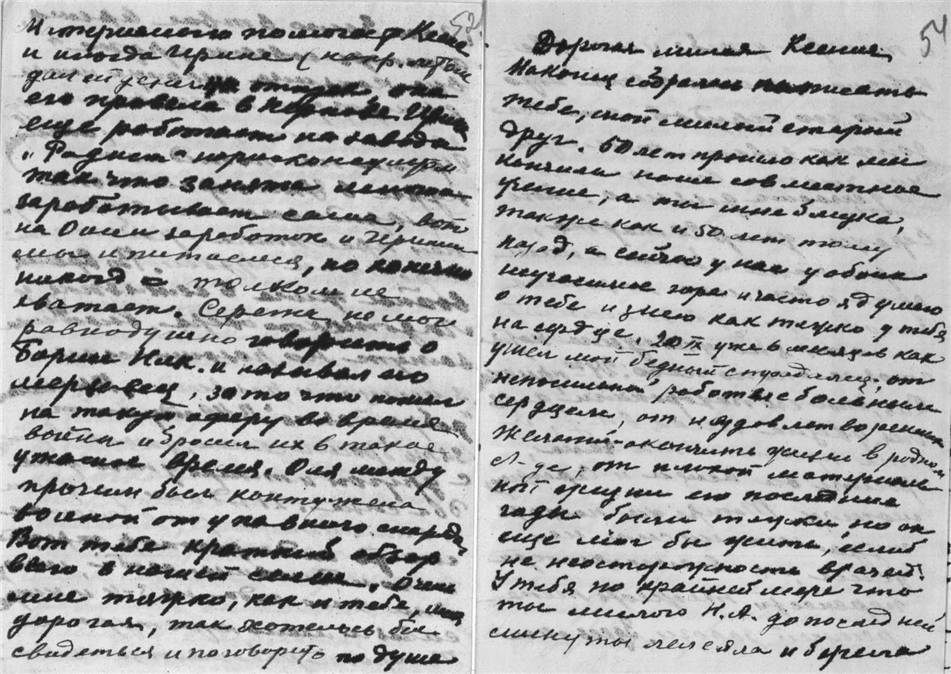 52.
Материально помогает Ксене
и иногда Ирине (напр. летом
дал ей на отпуск, она
его провела в Кирове. Ирина
еще работает на заводе
„Радист“
так что занята
заработывает сама, вот
на Олин заработок и Иринин
мы и питаемся, но конечно
никогда толком не
хватает. Сережа не мог
равнодушно говорить о
Борисе Ник. и называл его
мерзавец, за то что пошел
на такую аферу во время
войны и бросил их в такое
ужасное время. Оля между
прочим была контужена
волной от упавшего снаряда.
Вот тебе краткий обзор
всего в нашей семье. Очень
мне тяжко, как и тебе, моя
дорогая, так хотелось бы
свидеться и поговорить по душе
54
Дорогая милая Ксения
Наконец собралась написать
тебе, мой милый старый
друг. 50 лет прошло как мы
кончили наше совместное
учение, а ты мне близка,
также как и 50 лет тому
назад, а сейчас у нас у обоих
неутешное горе и часто я думаю
о тебе и знаю как тяжко у тебя
на сердце. 20 II уже 6 месяцев как
ушел мой бедный страдалец, от
непосильной работы с больным
сердцем, от неудовлетворения
желаний окончить жизнь в родном
Л-де, от плохой материаль
ной жизни его последние
годы были тяжки но он
еще мог бы жить, если б
не неосторожность врачей.
У тебя по крайней мере что
ты милого Н.А. до последней
минуты лелеяла и берегла